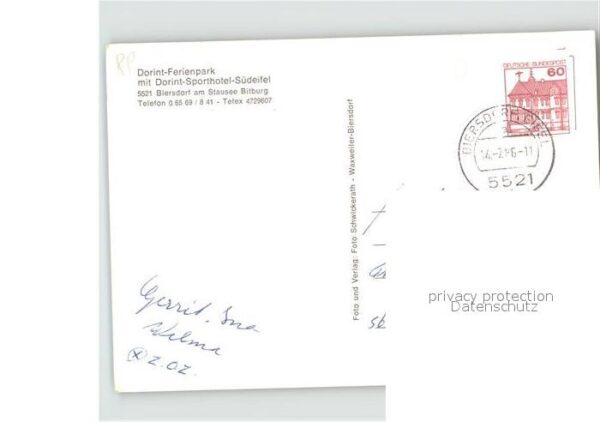 RP
Dorint-Ferienpark
mit Dorint-Sporthotel-Südeifel
5521 Biersdorf am Stausee Bitburg
Telefon 0 65 69 / 8 41 - Telex 4729607
DEUTSCHE BUNDESPOST
60
BIERSDORF, EIFEL
5521
Foto und Verlag: Foto Schwickerath - Waxweiler-Biersdorf
Gerrit, Ina
Wilma
Z.O.Z.
privacy protection
Datenschutz